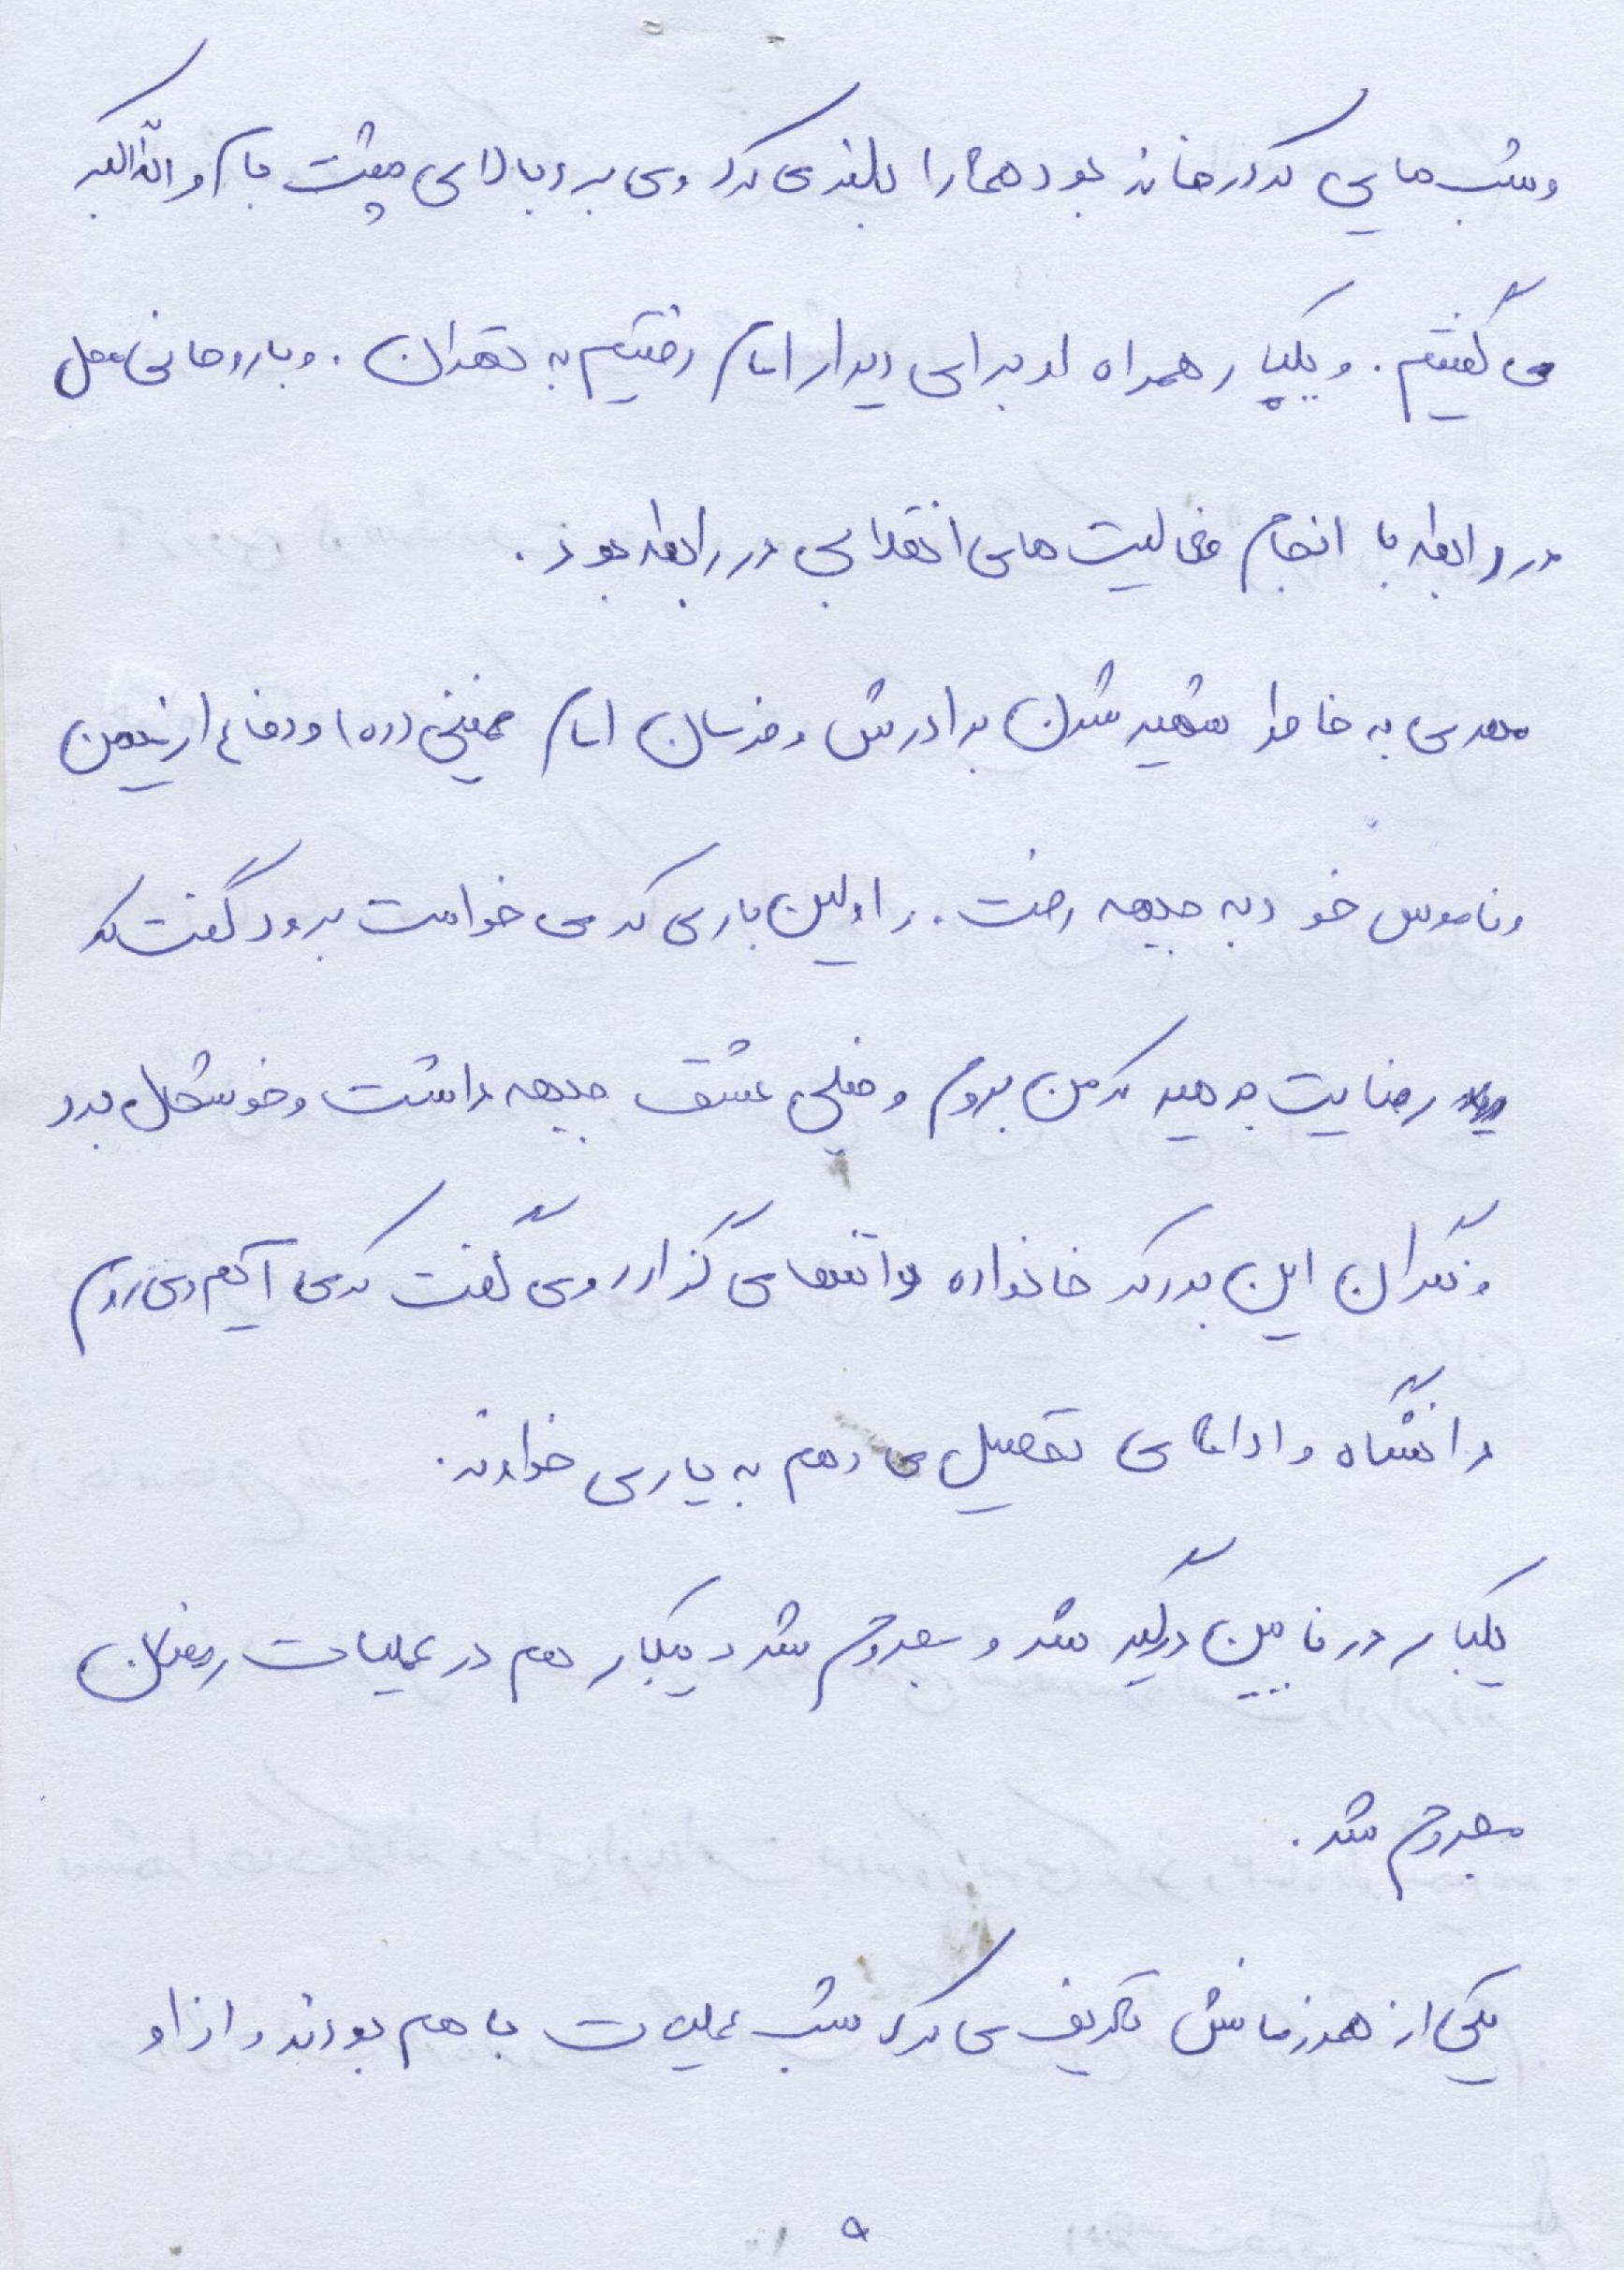 و شب هایی که در خانه بود همه را بلند می کرد و می برد بالای پشت بام و الله اکبر
می گفتیم. و یکبار همراه او برای دیدار امام رفتیم به تهران. و با روحانی محل
در رابطه با انجام فعالیت های انقلابی در رابطه بود.
مهدی به خاطر شهید شدن برادرش و فرمان امام خمینی (ره) و دفاع از میهن
و ناموس خود به جبهه رفت. و اولین باری که می خواست برود گفت که
رضایت بدهید که من بروم و خیلی عشق جبهه داشت و خوشحال بود
و نگران این بود که خانواده را تنها می گذارد و می گفت که می آیم و می روم
دانشگاه و ادامه ی تحصیل می دهم به یاری خداوند.
یکبار در ما بین درگیر شد و مجروح شد و یکبار هم در عملیات رمضان
مجروح شد.
یکی از همرزمانش تعریف می کرد شب عملیات با هم بودند و از او
۹